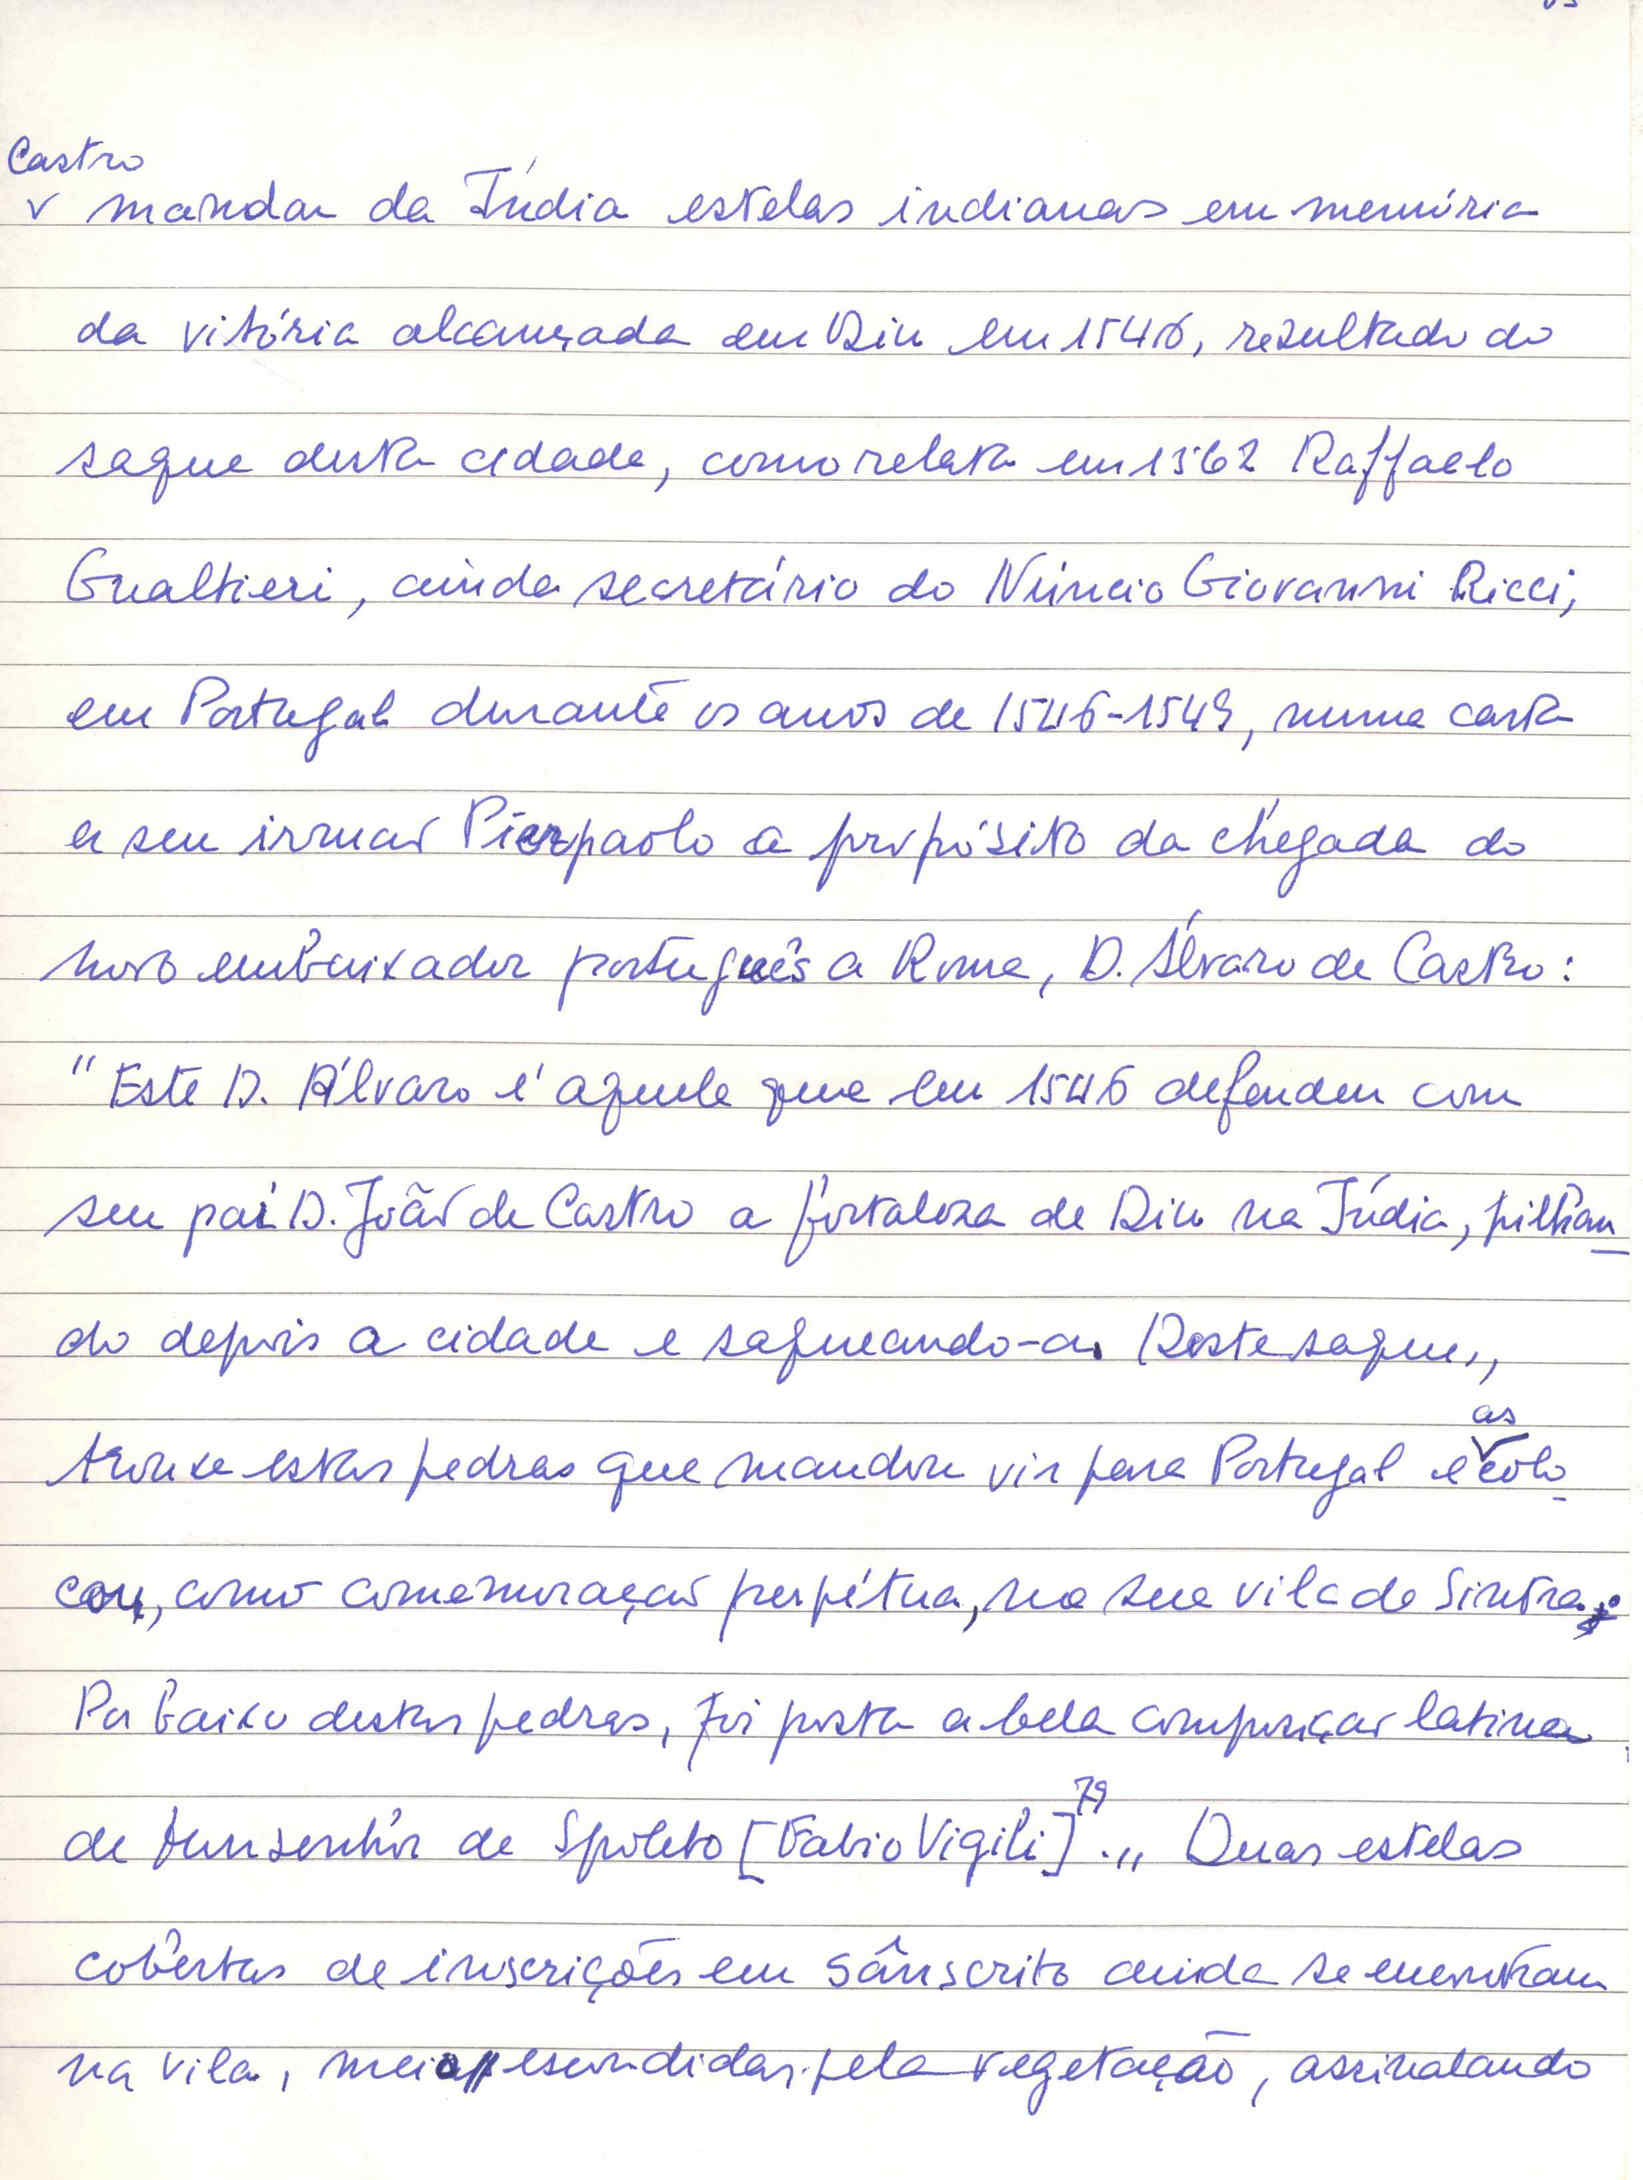 Castro
v mandar da Índia estelas indianas em memória
da vitória alcançada em Diu em 1546, resultado do
saque desta cidade, como relata em 1562 Raffaelo
Gualtieri, ainda secretário do Núncio Giovanni Ricci,
em Portugal durante os anos de 1546-1549, numa carta
a seu irmão Pierpaolo a propósito da chegada do
novo embaixador português a Roma, D. Álvaro de Castro:
"Este D. Álvaro é aquele que em 1546 defendeu com
seu pai D. João de Castro a fortaleza de Diu na Índia, pilhan
do depois a cidade e saqueando-a. Deste saque,
as
trouxe estas pedras que mandou vir para Portugal e colo
cou, como comemoração perpétua, na sua vila de Sintra.
Por baixo destas pedras, foi posta a bela composição latina
de Monsenhor de Spoleto [Fabio Vigili]79." Duas estelas
cobertas de inscrições em sânscrito ainda se encontram
na vila, meio escondidas pela vegetação, assinalando